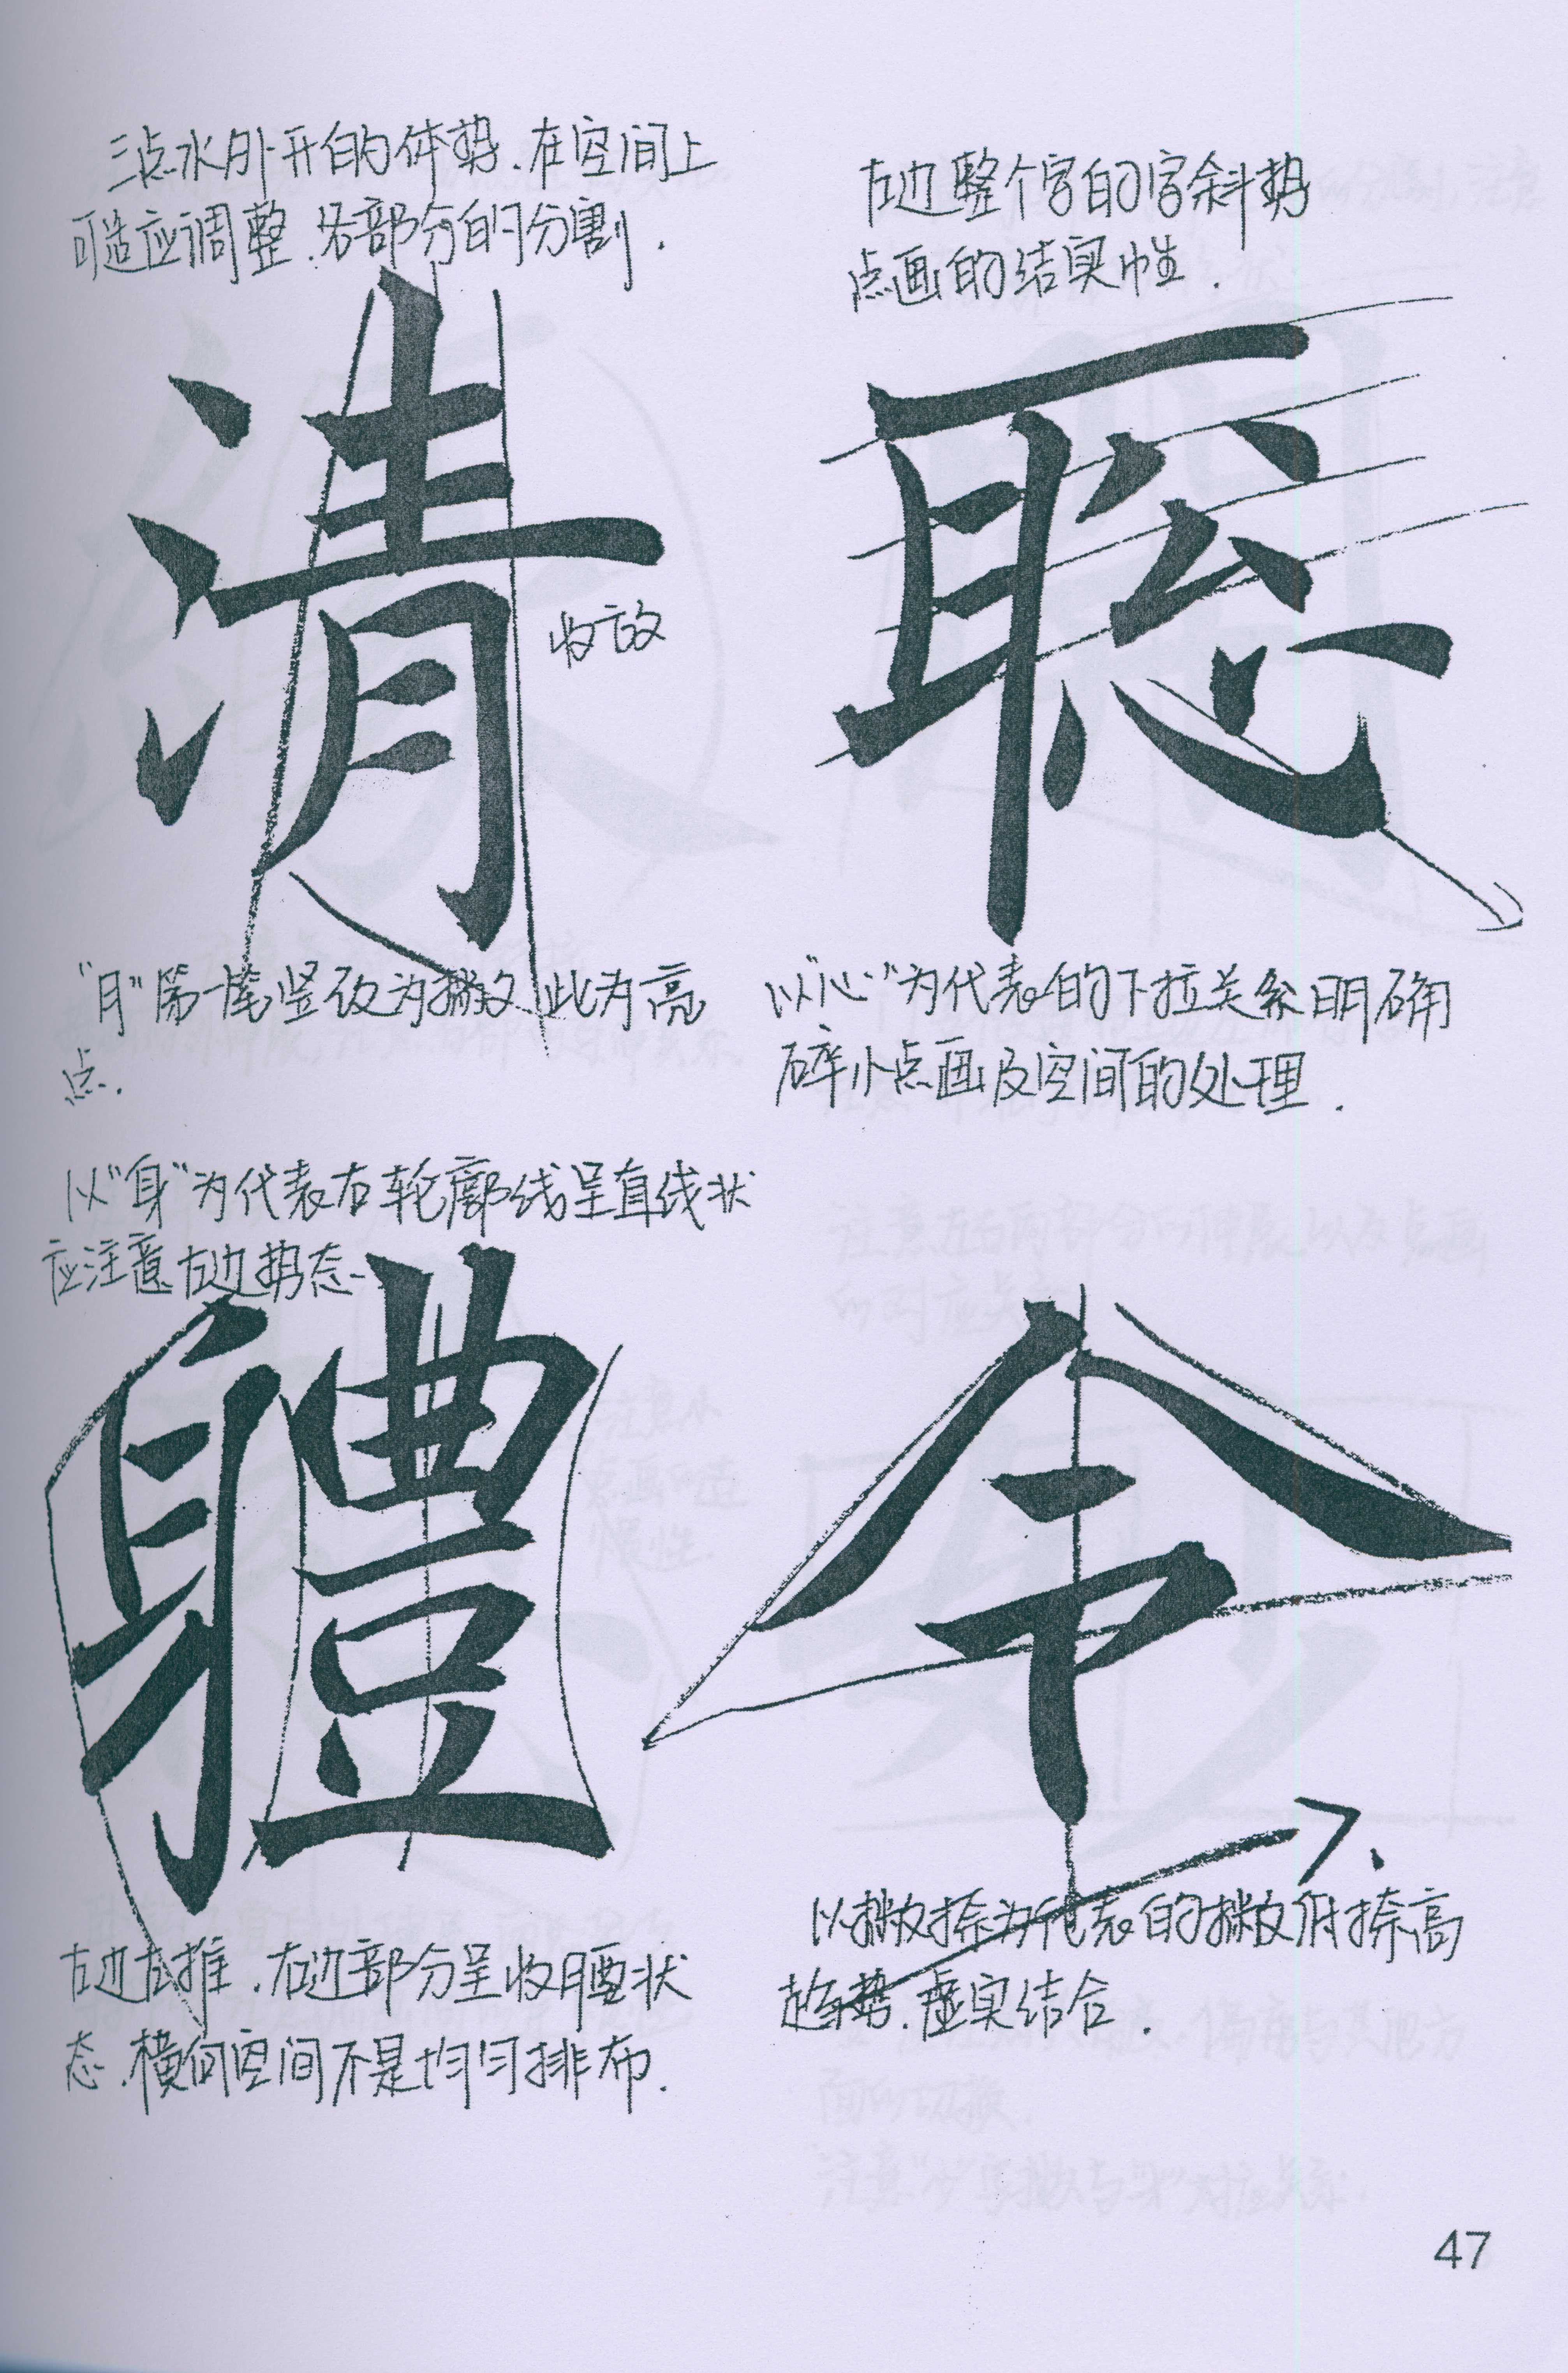 三点水外开的体势.在空间上
可造应调整.各部分的分割.
清
收放
"月"第一笔竖改为撇又此为亮
点.
左边整个字的字斜势
点画的结实性.
聪
以"心"为代表的下拉关系明确
碎小点画及空间的处理.
以"身"为代表右轮廓线呈直线状
应注意左边势态.
軆
左边左推.右边部分呈收腰状
态.横向空间不是均匀排布.
令
以撇捺为代表的撇低捺高
趋势.虚实结合.
47